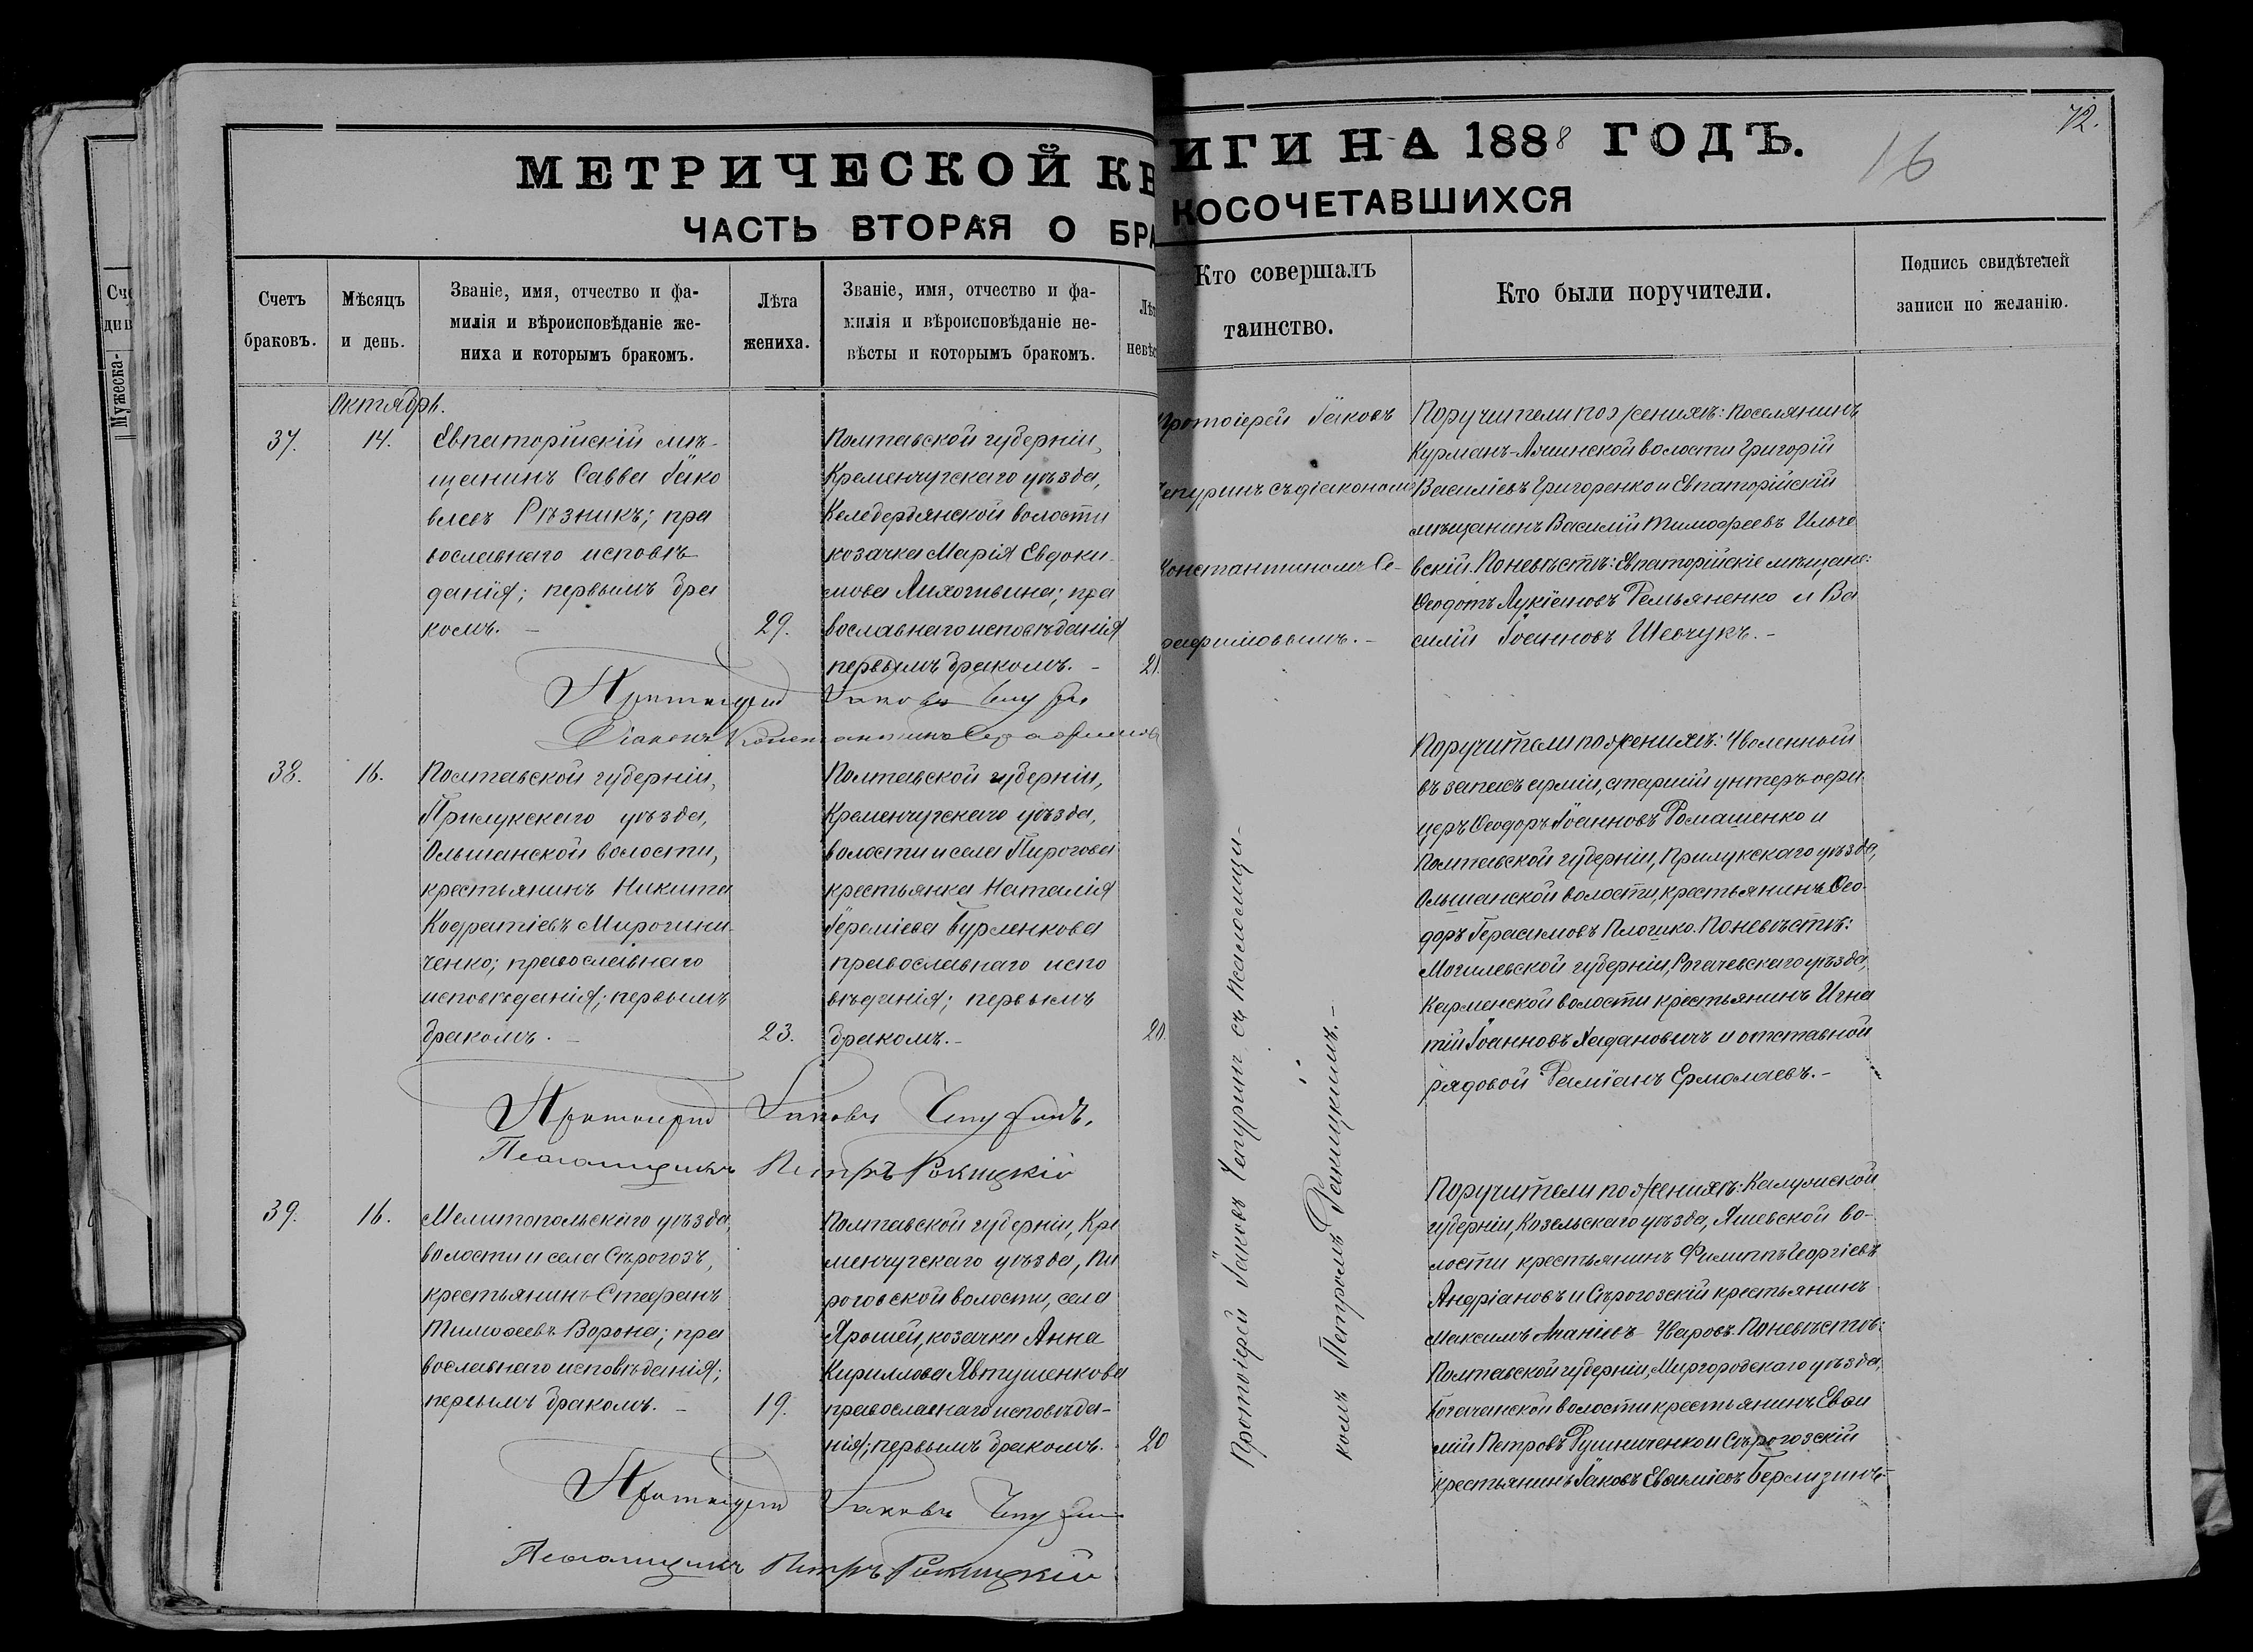 72.
16
МЕТРИЧЕСКОЙ КН
ИГИ НА 1888 ГОДЪ.
ЧАСТЬ ВТОРАЯ О БРА
КОСОЧЕТАВШИХСЯ
Счетъ
браковъ.
Мѣсяцъ
и день.
Званіе, имя, отчество и фа-
милія и вѣроисповѣданіе же-
ниха и которымъ бракомъ.
Лѣта
жениха.
Званіе, имя, отчество и фа-
милія и вѣроисповѣданіе не-
вѣсты и которымъ бракомъ.
Лѣт
невѣс
Кто совершалъ
таинство.
Кто были поручители.
Подпись свидѣтелей
записи по желанію.
Мужеска-
Октябрь.
37.
14.
Евпаторійскій мѣ-
щанинъ Савва Іако
влевъ Рѣзникъ; пра
вославнаго исповѣ
данія; первымъ бра
комъ. -
29.
Полтавской губерніи,
Кременчугскаго уѣзда,
Келебердянской волости
козачка Марія Евдоки-
мова Лихогивина; пра
вославнаго исповѣданія
первымъ бракомъ. -
21.
Протоіерей Іаковъ
Чепуринъ съ діакономъ
Константиномъ Се-
рафимовымъ. -
Поручители по женихѣ: поселянинъ
Курманъ-Аминской волости Григорій
Василіевъ Григоренко и Евпаторійскій
мѣщанинъ Василій Тимофеевъ Ильче
вскій. По невѣстѣ: Евпаторійскіе мѣщане:
Ѳеодотъ Лукіановъ Ремьяненко и Ва
силій Іоанновъ Шевчукъ. -
Протоіерей Іаковъ Чепуринъ
Діаконъ Константинъ Серафимовъ
38.
16.
Полтавской губерніи,
Прилукскаго уѣзда,
Ольшанской волости,
крестьянинъ Никита
Кодратіевъ Мирогини-
ченко; православнаго
исповѣданія; первымъ
бракомъ. -
23.
Полтавской губерніи,
Кременчугскаго уѣзда,
волости и села Пирогова
крестьянка Наталія
Іереміева Бурленкова
православнаго испо
вѣданія; первымъ
бракомъ. -
20.
Протоіерей Іаковъ Чепуринъ съ псаломщи-
комъ Петромъ Ракицкимъ. -
Поручители по женихѣ: Уволенный
въ запасъ арміи, старшій унтеръ-офи
церъ Ѳеодоръ Іоанновъ Ромашенко и
Полтавской губерніи, Прилукскаго уѣзда,
Ольшанской волости, крестьянинъ Ѳео-
доръ Герасимовъ Плошко. По невѣстѣ:
Могилевской губерніи, Рогачевскаго уѣзда,
Карменской волости крестьянинъ Игна
тій Іоанновъ Хадановичъ и отставной
рядовой Даміанъ Ермолаевъ. -
Протоіерей Іаковъ Чепуринъ.
Псаломщикъ Петръ Ракицкій
39.
16.
Мелитопольскаго уѣзда,
волости и села Сѣрогозъ,
крестьянинъ Стефанъ
Тимоѳеевъ Ворона; пра
вославнаго исповѣданія;
первымъ бракомъ. -
19.
Полтавской губерніи, Кре
менчугскаго уѣзда, Пи
роговской волости, села
Ярошей, козачка Анна
Кириллова Явтушенкова
православнаго исповѣда-
нія; первымъ бракомъ.
20
Поручители по женихѣ: Калужской
губерніи, Козельскаго уѣзда, Яшевской во-
лости крестьянинъ Филиппъ Георгіевъ
Андріановъ и Сѣрогозскій крестьянинъ
Максимъ Ананіевъ Уваровъ. По невѣстѣ:
Полтавской губерніи, Миргородскаго уѣзда,
Богачанской волости крестьянинъ Евѳи
мій Петровъ Рушниченко и Сѣрогозскій
крестьянинъ Іаковъ Евѳиміевъ Берлизинъ. -
Протоіерей Іаковъ Чепуринъ
Псаломщикъ Петръ Ракицкій